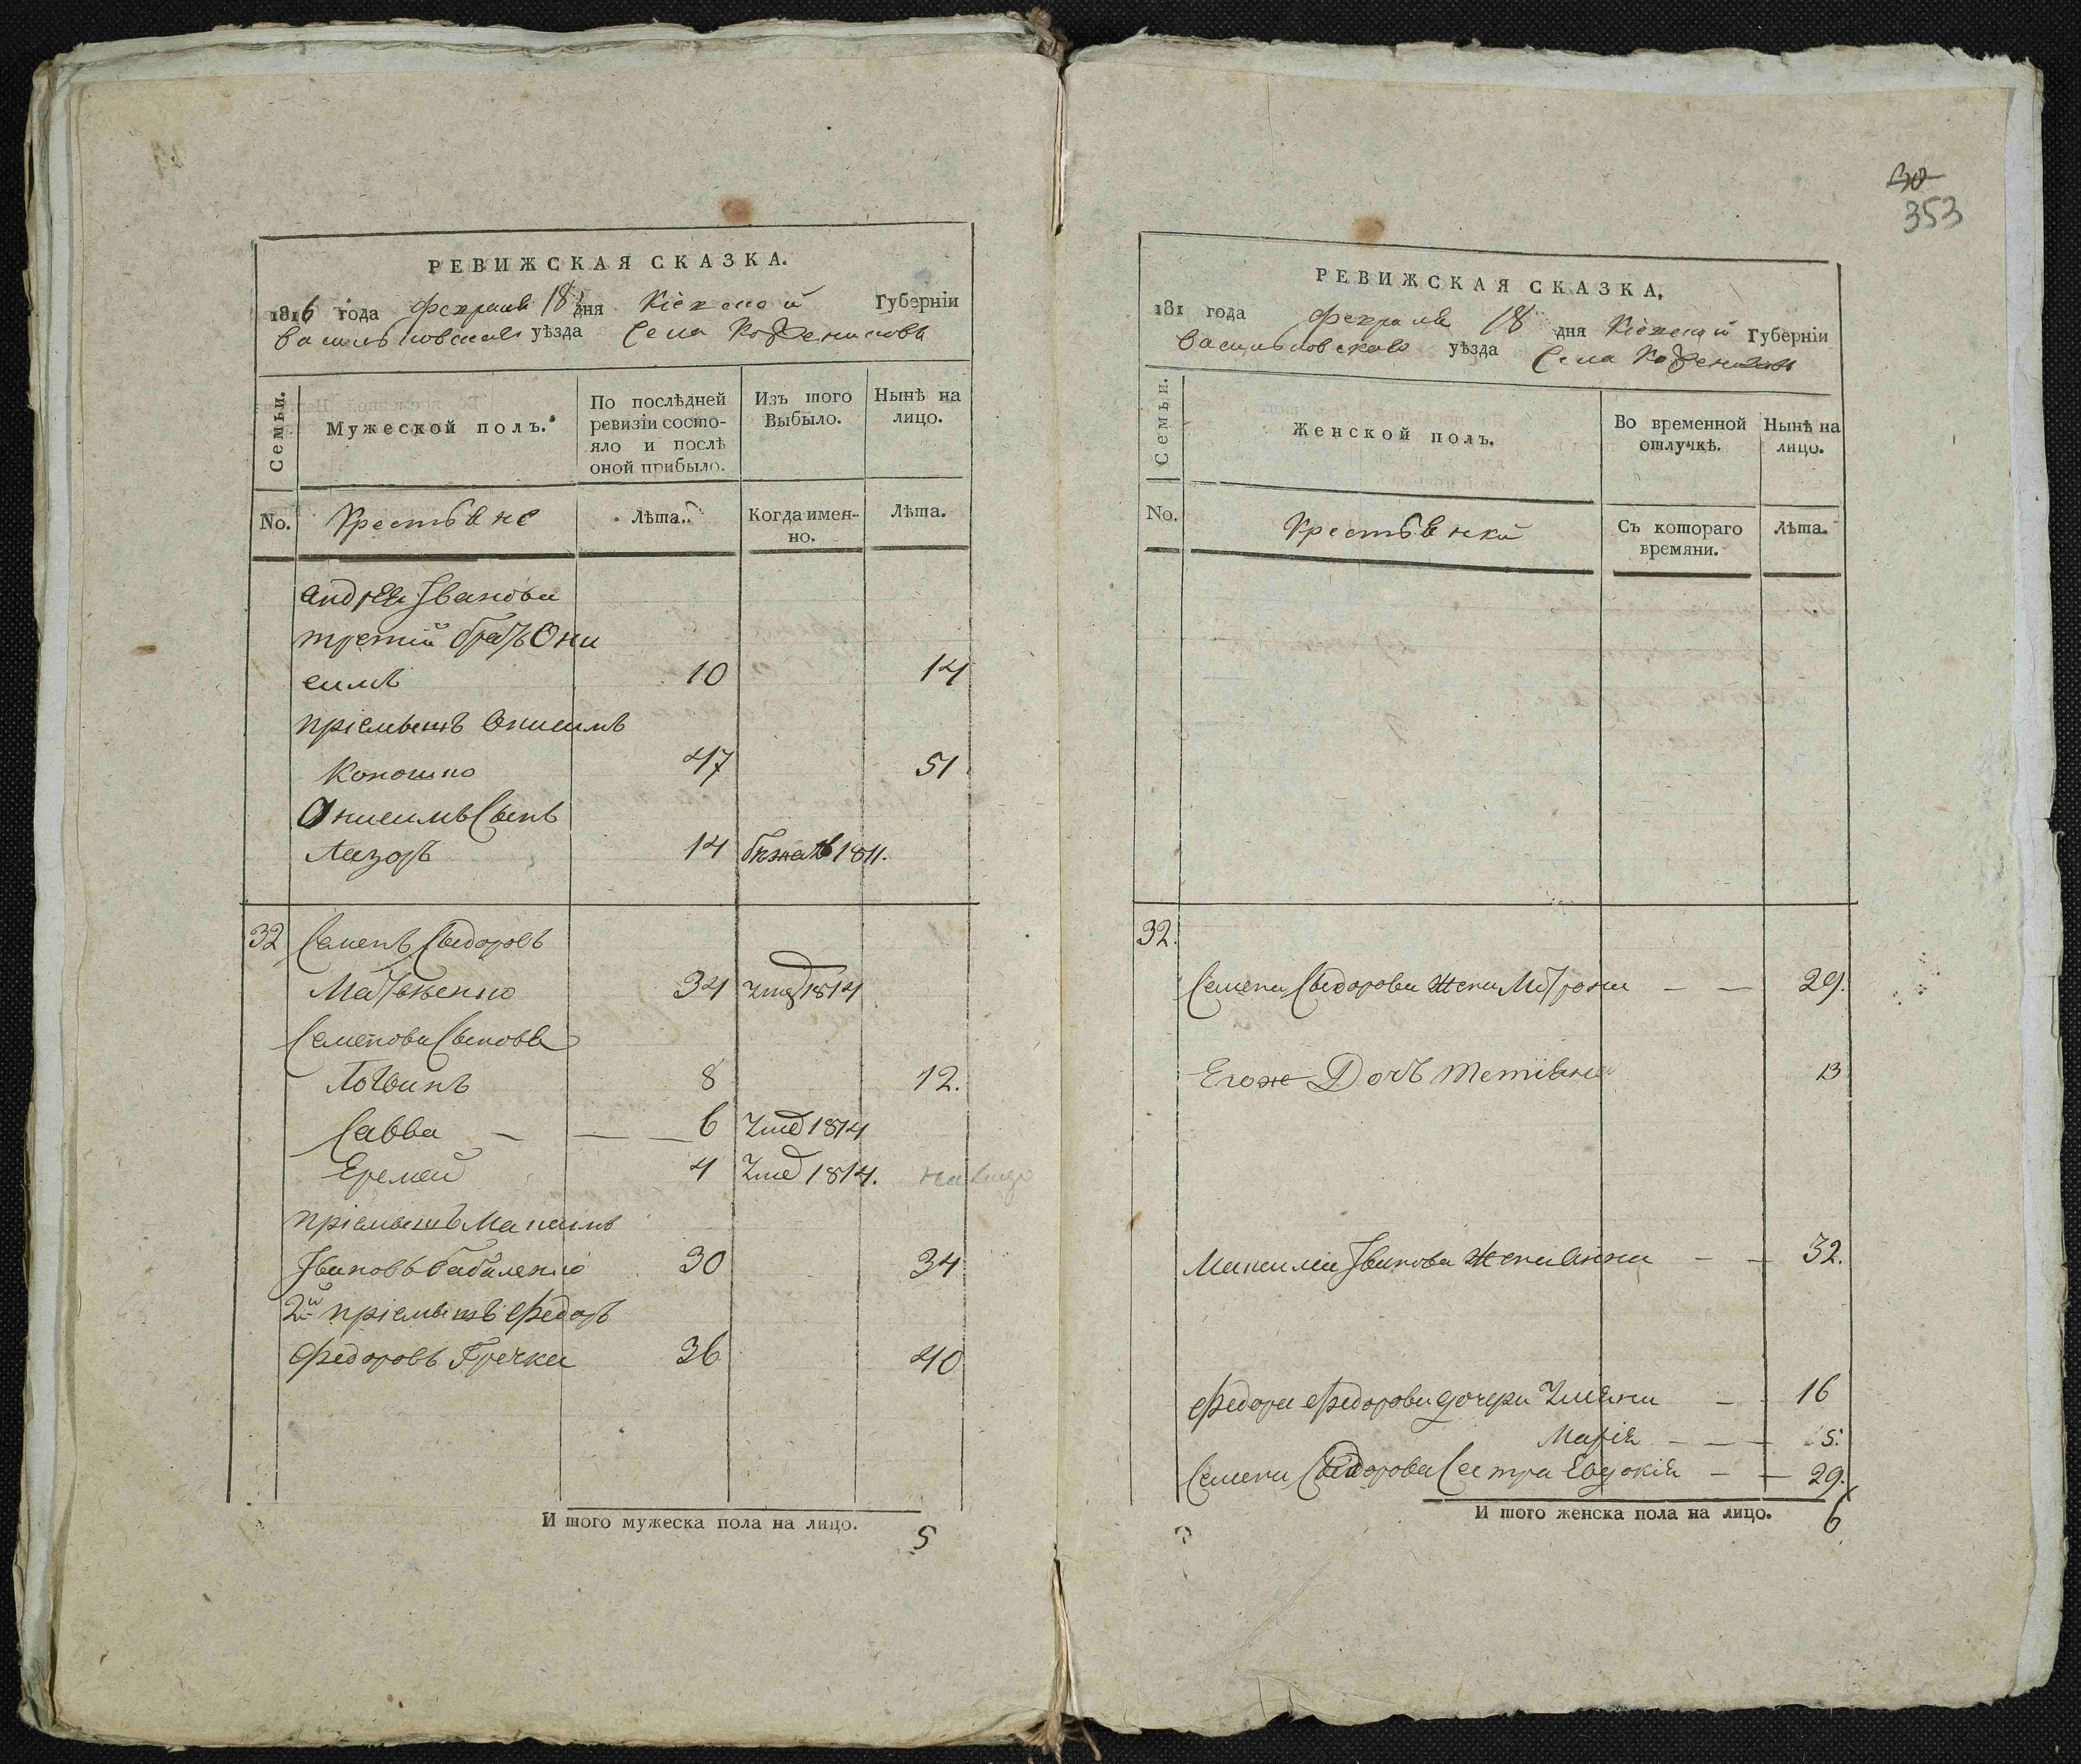 РЕВИЖСКАЯ СКАЗКА.
1816 года Февраля 18 дня Кіевской Губерніи
Васильковскаго уѣзда Села
Семьи.
Мужеской полъ.
По послѣдней ревизіи состояло и послѣ оной прибыло.
Изъ того Выбыло.
Нынѣ на лицо.
No. Крестьяне Лѣта. Когда именно. Лѣта.
Андрея Иванова
третій братъ Они
симъ 10 14
пріемышъ Онисимъ
Коношко 47 51
Онисимъ Сынъ
Лазоръ 14 бѣжалъ 1811.
32 Семенъ Сыдоровъ
Матвѣенко 34 Умер 1814
Семенова Сыновья
Логвинъ 8 12.
Савва — — — 6 Умер 1814
Еремей 4 Умер 1814. на лицо
пріемышъ Максимъ
Ивановъ Бабаленко 30 34
2й пріемышъ Федоръ
Федоровъ Гречка 36 40
И того мужеска пола на лицо. 5
30
353
РЕВИЖСКАЯ СКАЗКА.
181 года Февраля 18 дня Кіевской Губерніи
Васильковскаго уѣзда Села
Семьи.
Женской полъ.
Во временной отлучкѣ.
Нынѣ на лицо.
No. Крестьянки Съ котораго времяни. Лѣта.
32.
Семена Сыдорова Жена Матрона — — 29.
Егоже Дочь Тетіяна 13
Максима Иванова Жена Анна — — 32.
Федора Федорова дочери Уліяна — 16
Марія — — — 5.
Семена Сыдорова Сестра Евдокія — — 29.
И того женска пола на лицо. 6